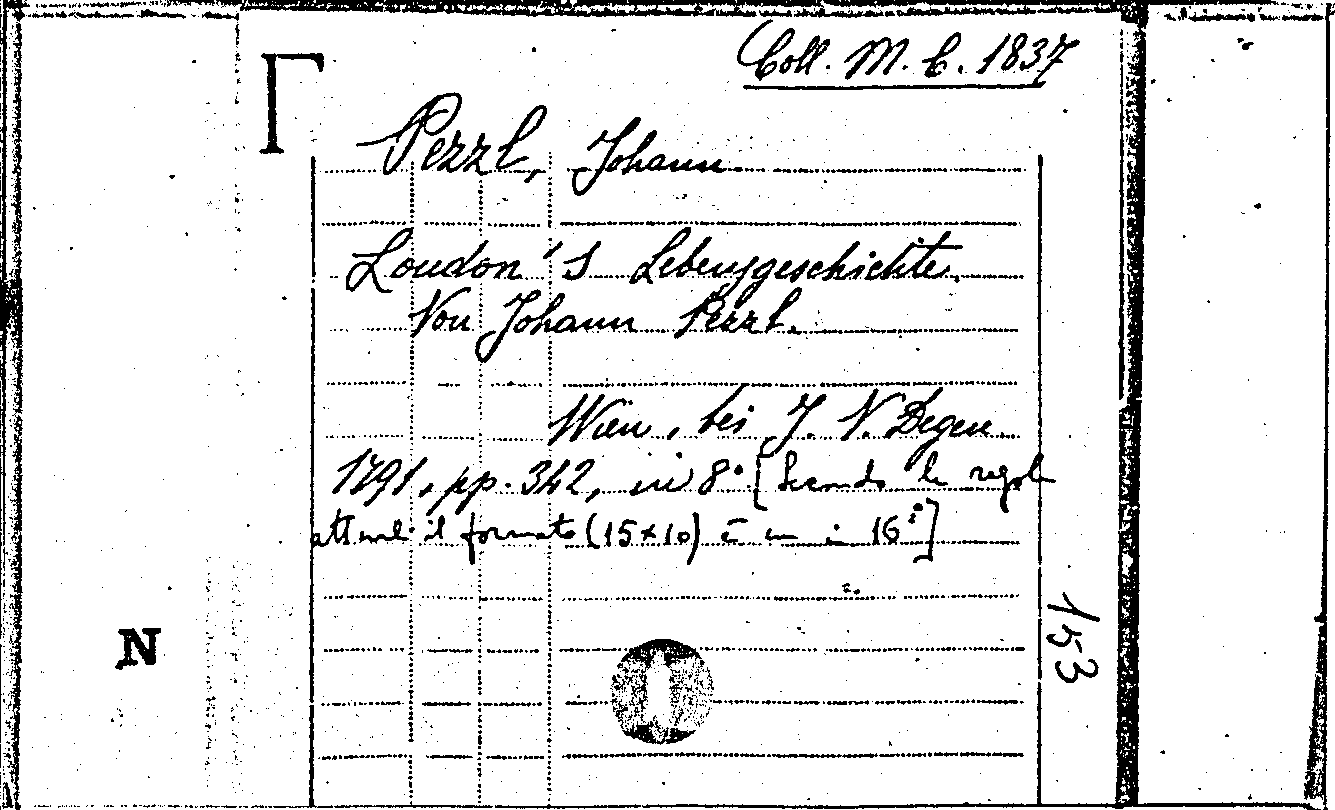 Coll. M. C. 1837
Pezzl, Johann.
Loudon's Lebensgeschichte.
Von Johann Pezzl.
Wien, bei J. V. Degen
1791, pp. 342, in 8° [Secondo le regole
attuali il formato (15x10) è un in 16°]
153
N